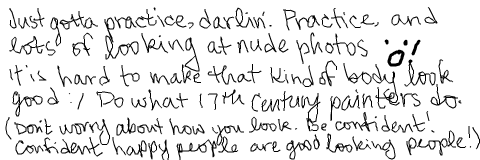 Just gotta practice, darlin'. Practice, and
lots of looking at nude photos :o!
it is hard to make that kind of body look
good :/ Do what 17th Century painters do.
(Don't worry about how you look. Be confident!
Confident happy people are good looking people!)